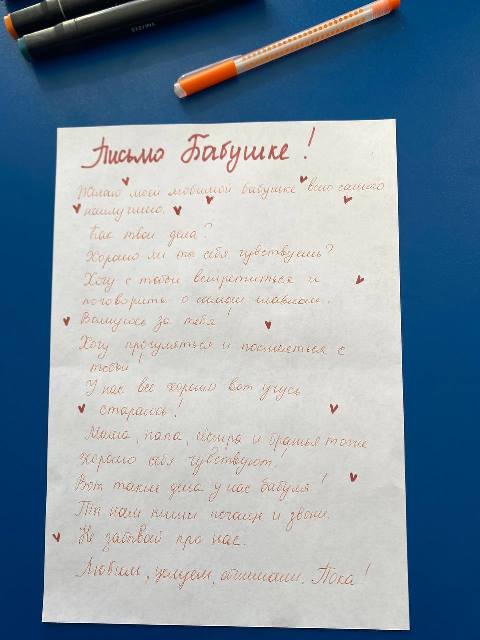 Письмо Бабушке!
Желаю моей любимой бабушке всего самого
наилучшего.
Как твои дела?
Хорошо ли ты себя чувствуешь?
Хочу с тобой встретиться и
поговорить о самом главном.
Волнуюсь за тебя!
Хочу прогуляться и посмеяться с
тобой
У нас все хорошо вот учусь
стараюсь!
Мама, папа, сёстры и братья тоже
хорошо себя чувствуют!
Вот такие дела у нас бабуля!
Ты нам пиши почаще и звони.
Не забывай про нас.
Любим, целуем, обнимаем. Пока!